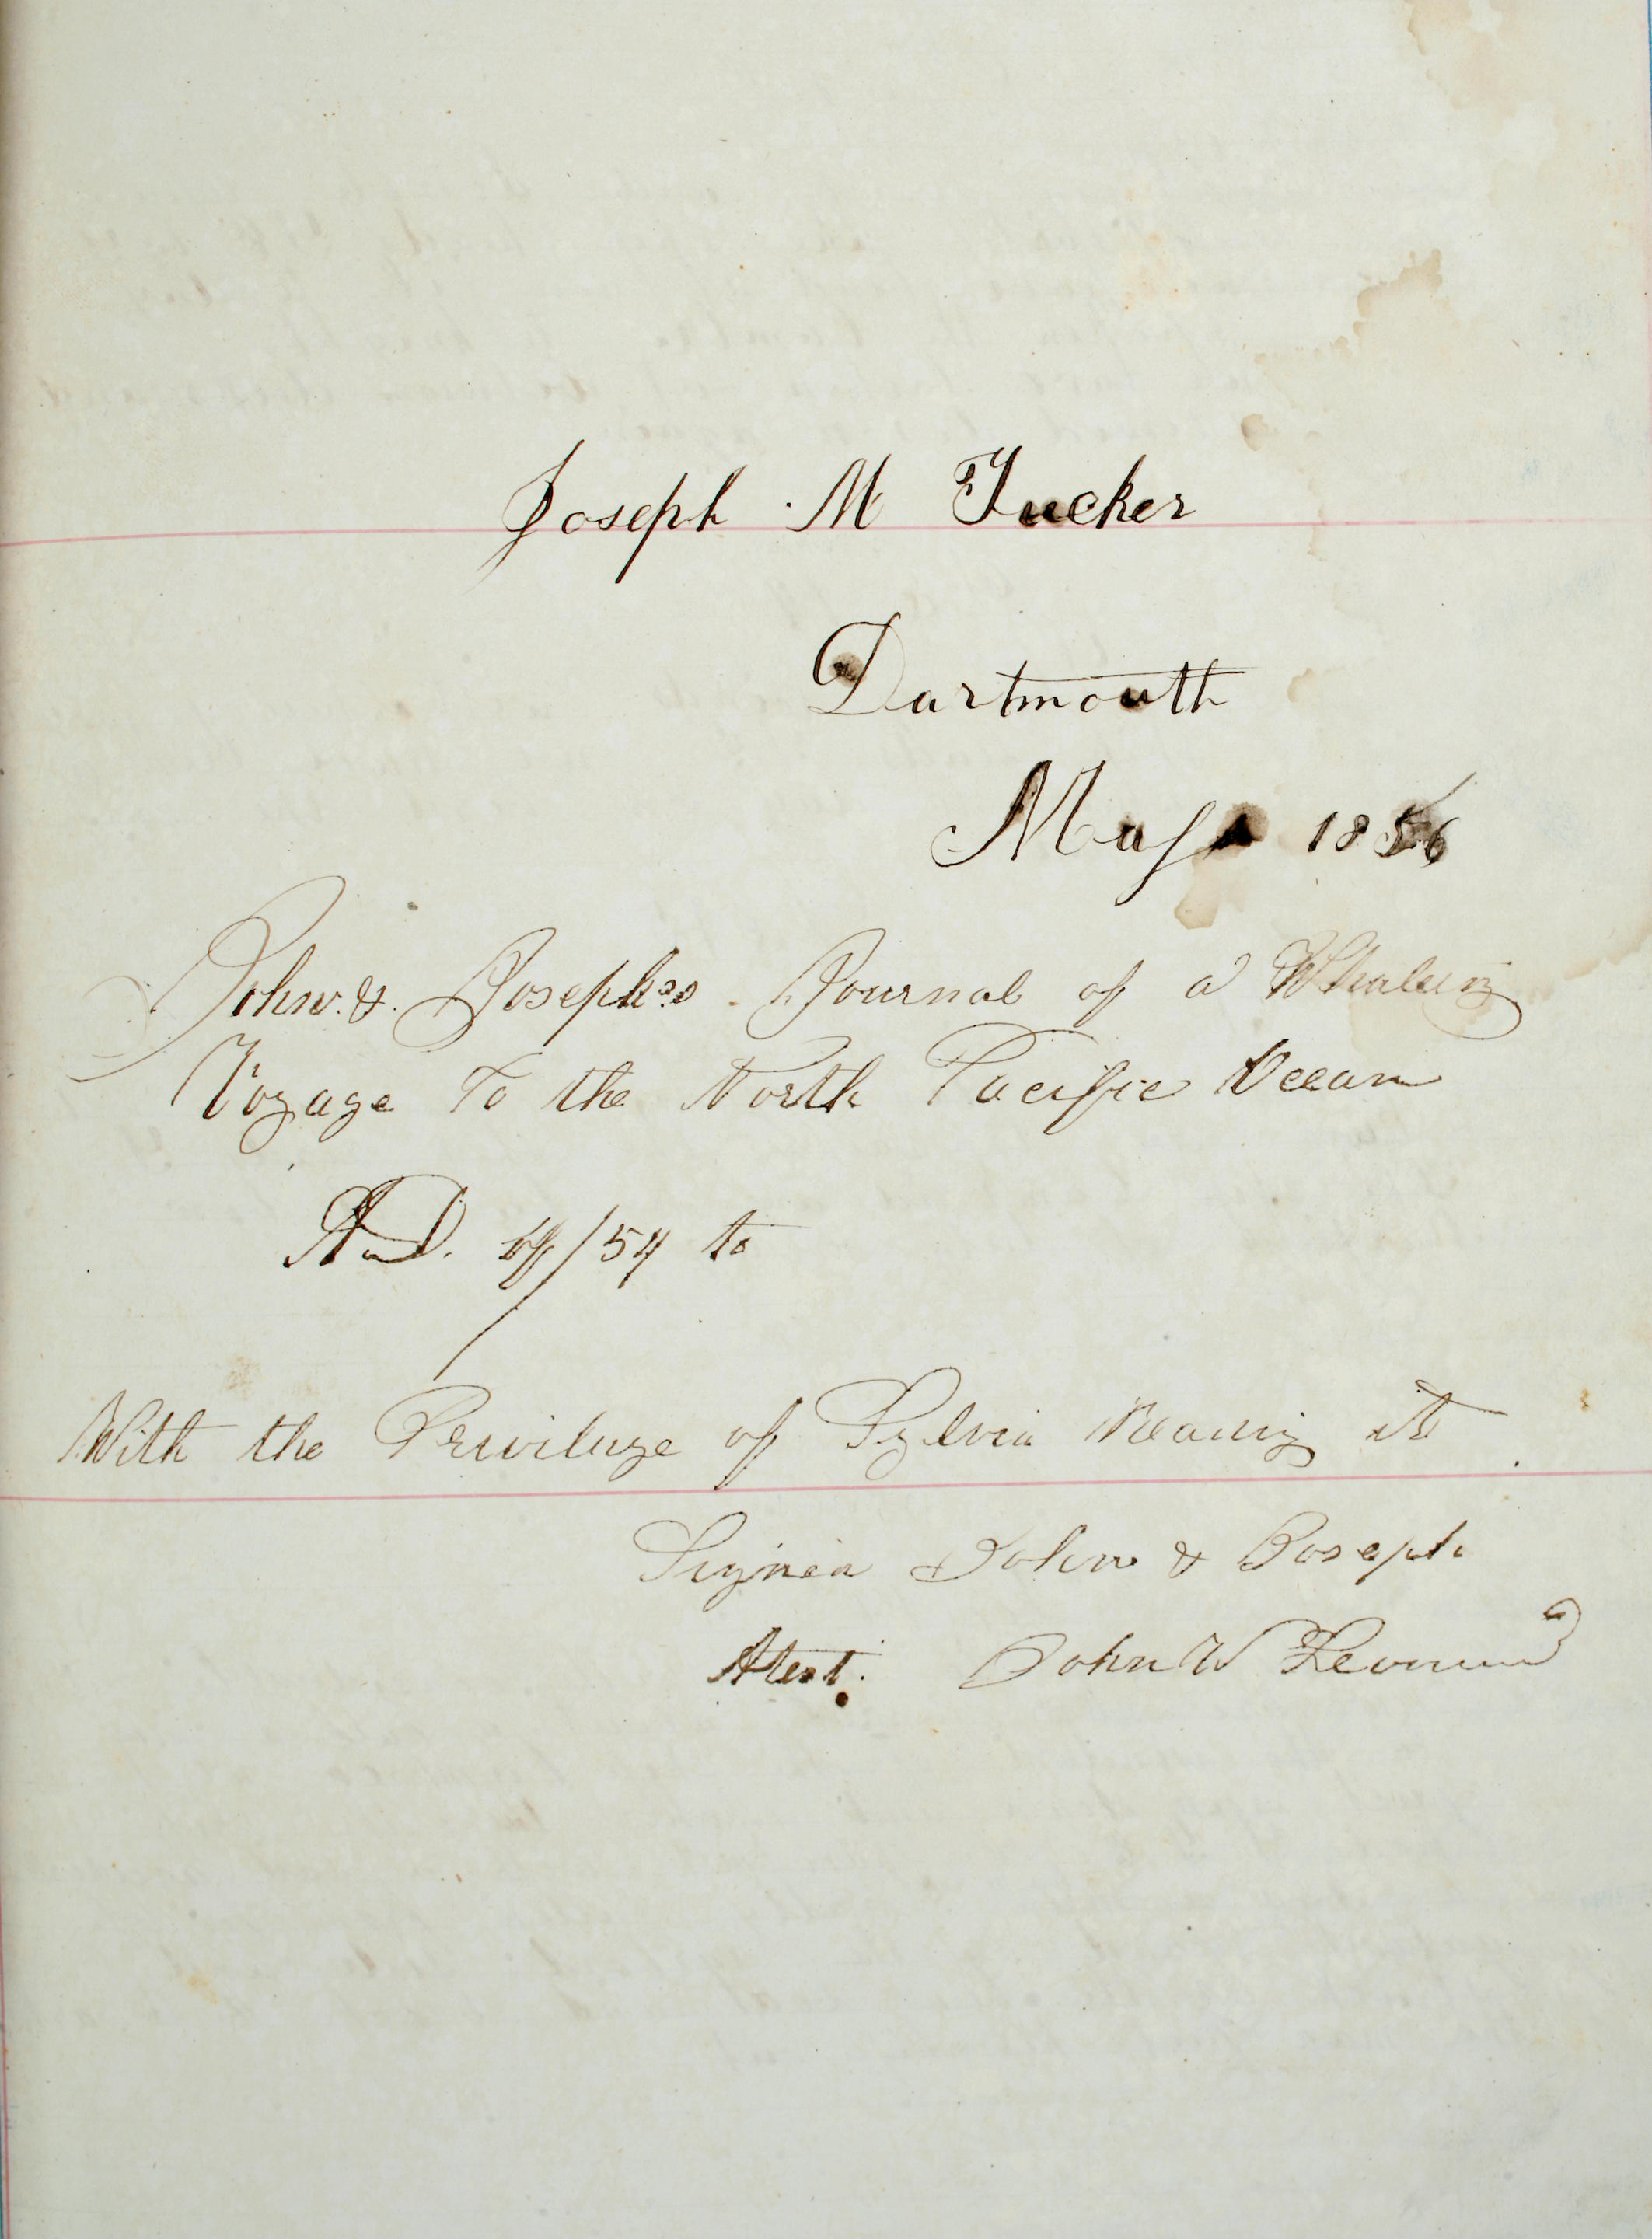 Joseph M Tucker
Dartmouth
Mass 1856
John & Josephs Journal of a Whaleing
Voyage To the North Pacific Ocean
A.D. /54 to
With the Priviluge of Sylvia Reading it
Signed John & Joseph
Atest. John W